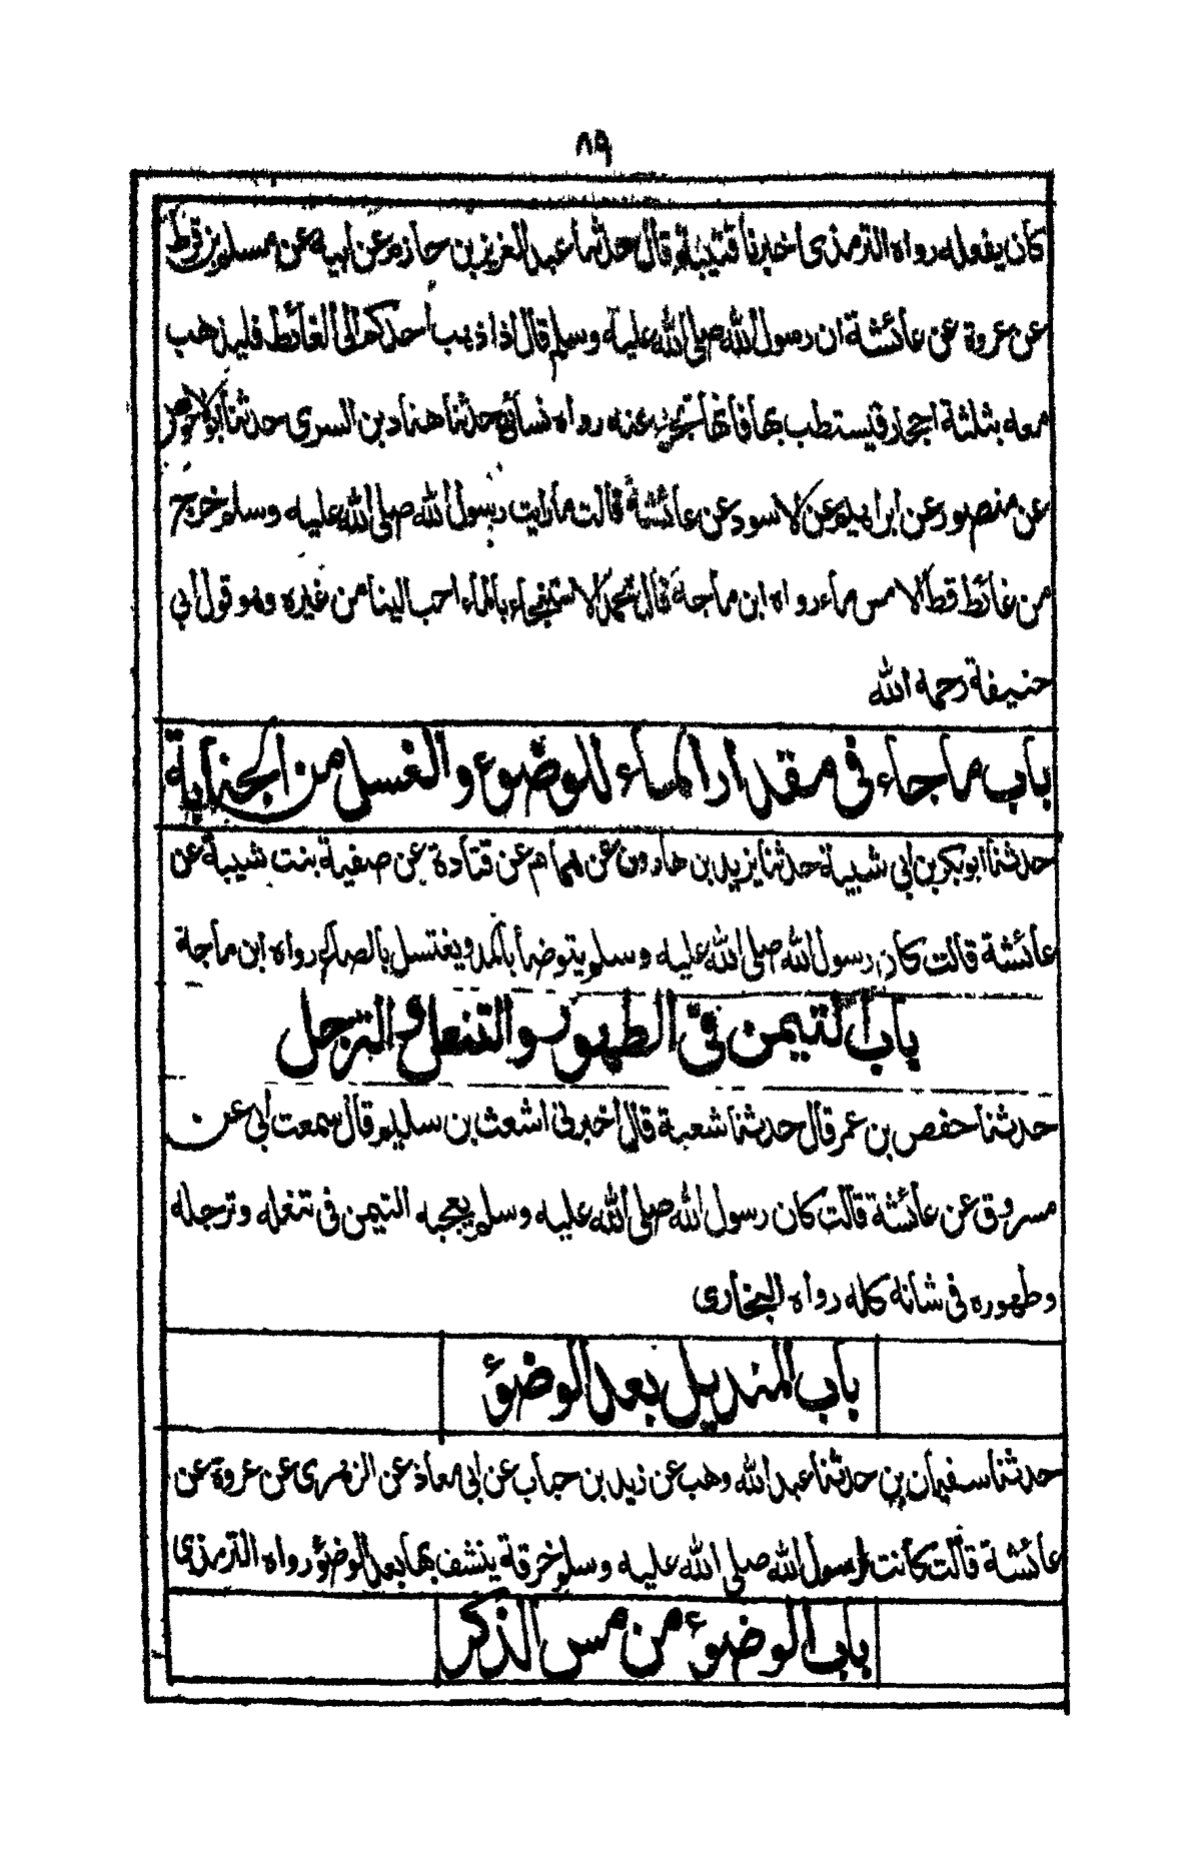 ٨٩
كان يفعله رواه الترمذى اخبرنا قتيبة قال حدثنا عبد العزيز بن حازم عن ابيه عن مسلم بن قرط
عن عروة عن عائشة ان رسول الله صلى الله عليه وسلم قال اذا ذهب احدكم الى الغائط فليذهب
معه بثلثة احجار فيستطب بها فانها تجزى عنه رواه نسائى حدثنا هناد بن السرى حدثنا ابو الاحوص
عن منصور عن ابراهيم عن الاسود عن عائشة قالت ما رايت رسول الله صلى الله عليه وسلم خرج
من غائط قط الا مس ماء رواه ابن ماجة قال محمد الاستنجاء بالماء احب الينا من غيره وهو قول ابى
حنيفة رحمه الله
باب ماجاء فى مقدار الماء للوضوء والغسل من الجنابة
حدثنا ابوبكر بن ابى شيبة حدثنا يزيد بن هارون عن همام عن قتادة عن صفية بنت شيبة عن
عائشة قالت كان رسول الله صلى الله عليه وسلم يتوضأ بالمد ويغتسل بالصاع رواه ابن ماجة
باب التيمن فى الطهور والتنعل والترجل
حدثنا حفص بن عمر قال حدثنا شعبة قال اخبرنى اشعث بن سليم قال سمعت ابى عن
مسروق عن عائشة قالت كان رسول الله صلى الله عليه وسلم يعجبه التيمن فى تنعله وترجله
وطهوره فى شانه كله رواه البخارى
باب المنديل بعد الوضوء
حدثنا سفيان بن حدثنا عبد الله وهب عن زيد بن حباب عن ابى معاذ عن الزهرى عن عروة عن
عائشة قالت كانت لرسول الله صلى الله عليه وسلم خرقة ينشف بها بعد الوضوء رواه الترمذى
باب الوضوء من مس الذكر